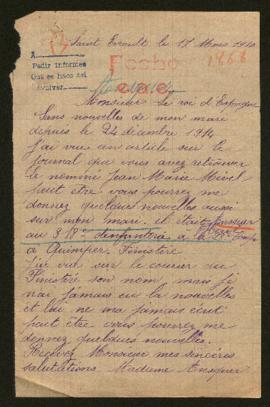 Saint Evroult le 17 Mars 191
Pedir informes
Que se haco del
Fecho
1868
Monsieur Le roi d'Espagne
Sans nouvelles de mon mari
depuis le 24 decembre 1914
j'ai vue un article sur le
journal que vous avez retrouver
le nominé Jean Marie Mivel
peut être vous pourrez me
donnez quelques nouvelles aussi
sur mon mari. il etait
au 318e d'infanterie à la
a Quimper. Finistère
j'ai vue sur le courier du
Finistéré son nom mais je
n'ai jamais eu la nouvelles
et lui ne ma jamais écrit
peut être vous pourrez me
donnez quelques nouvelles.
Recevez Monsieur mes sincères
salutations Madame